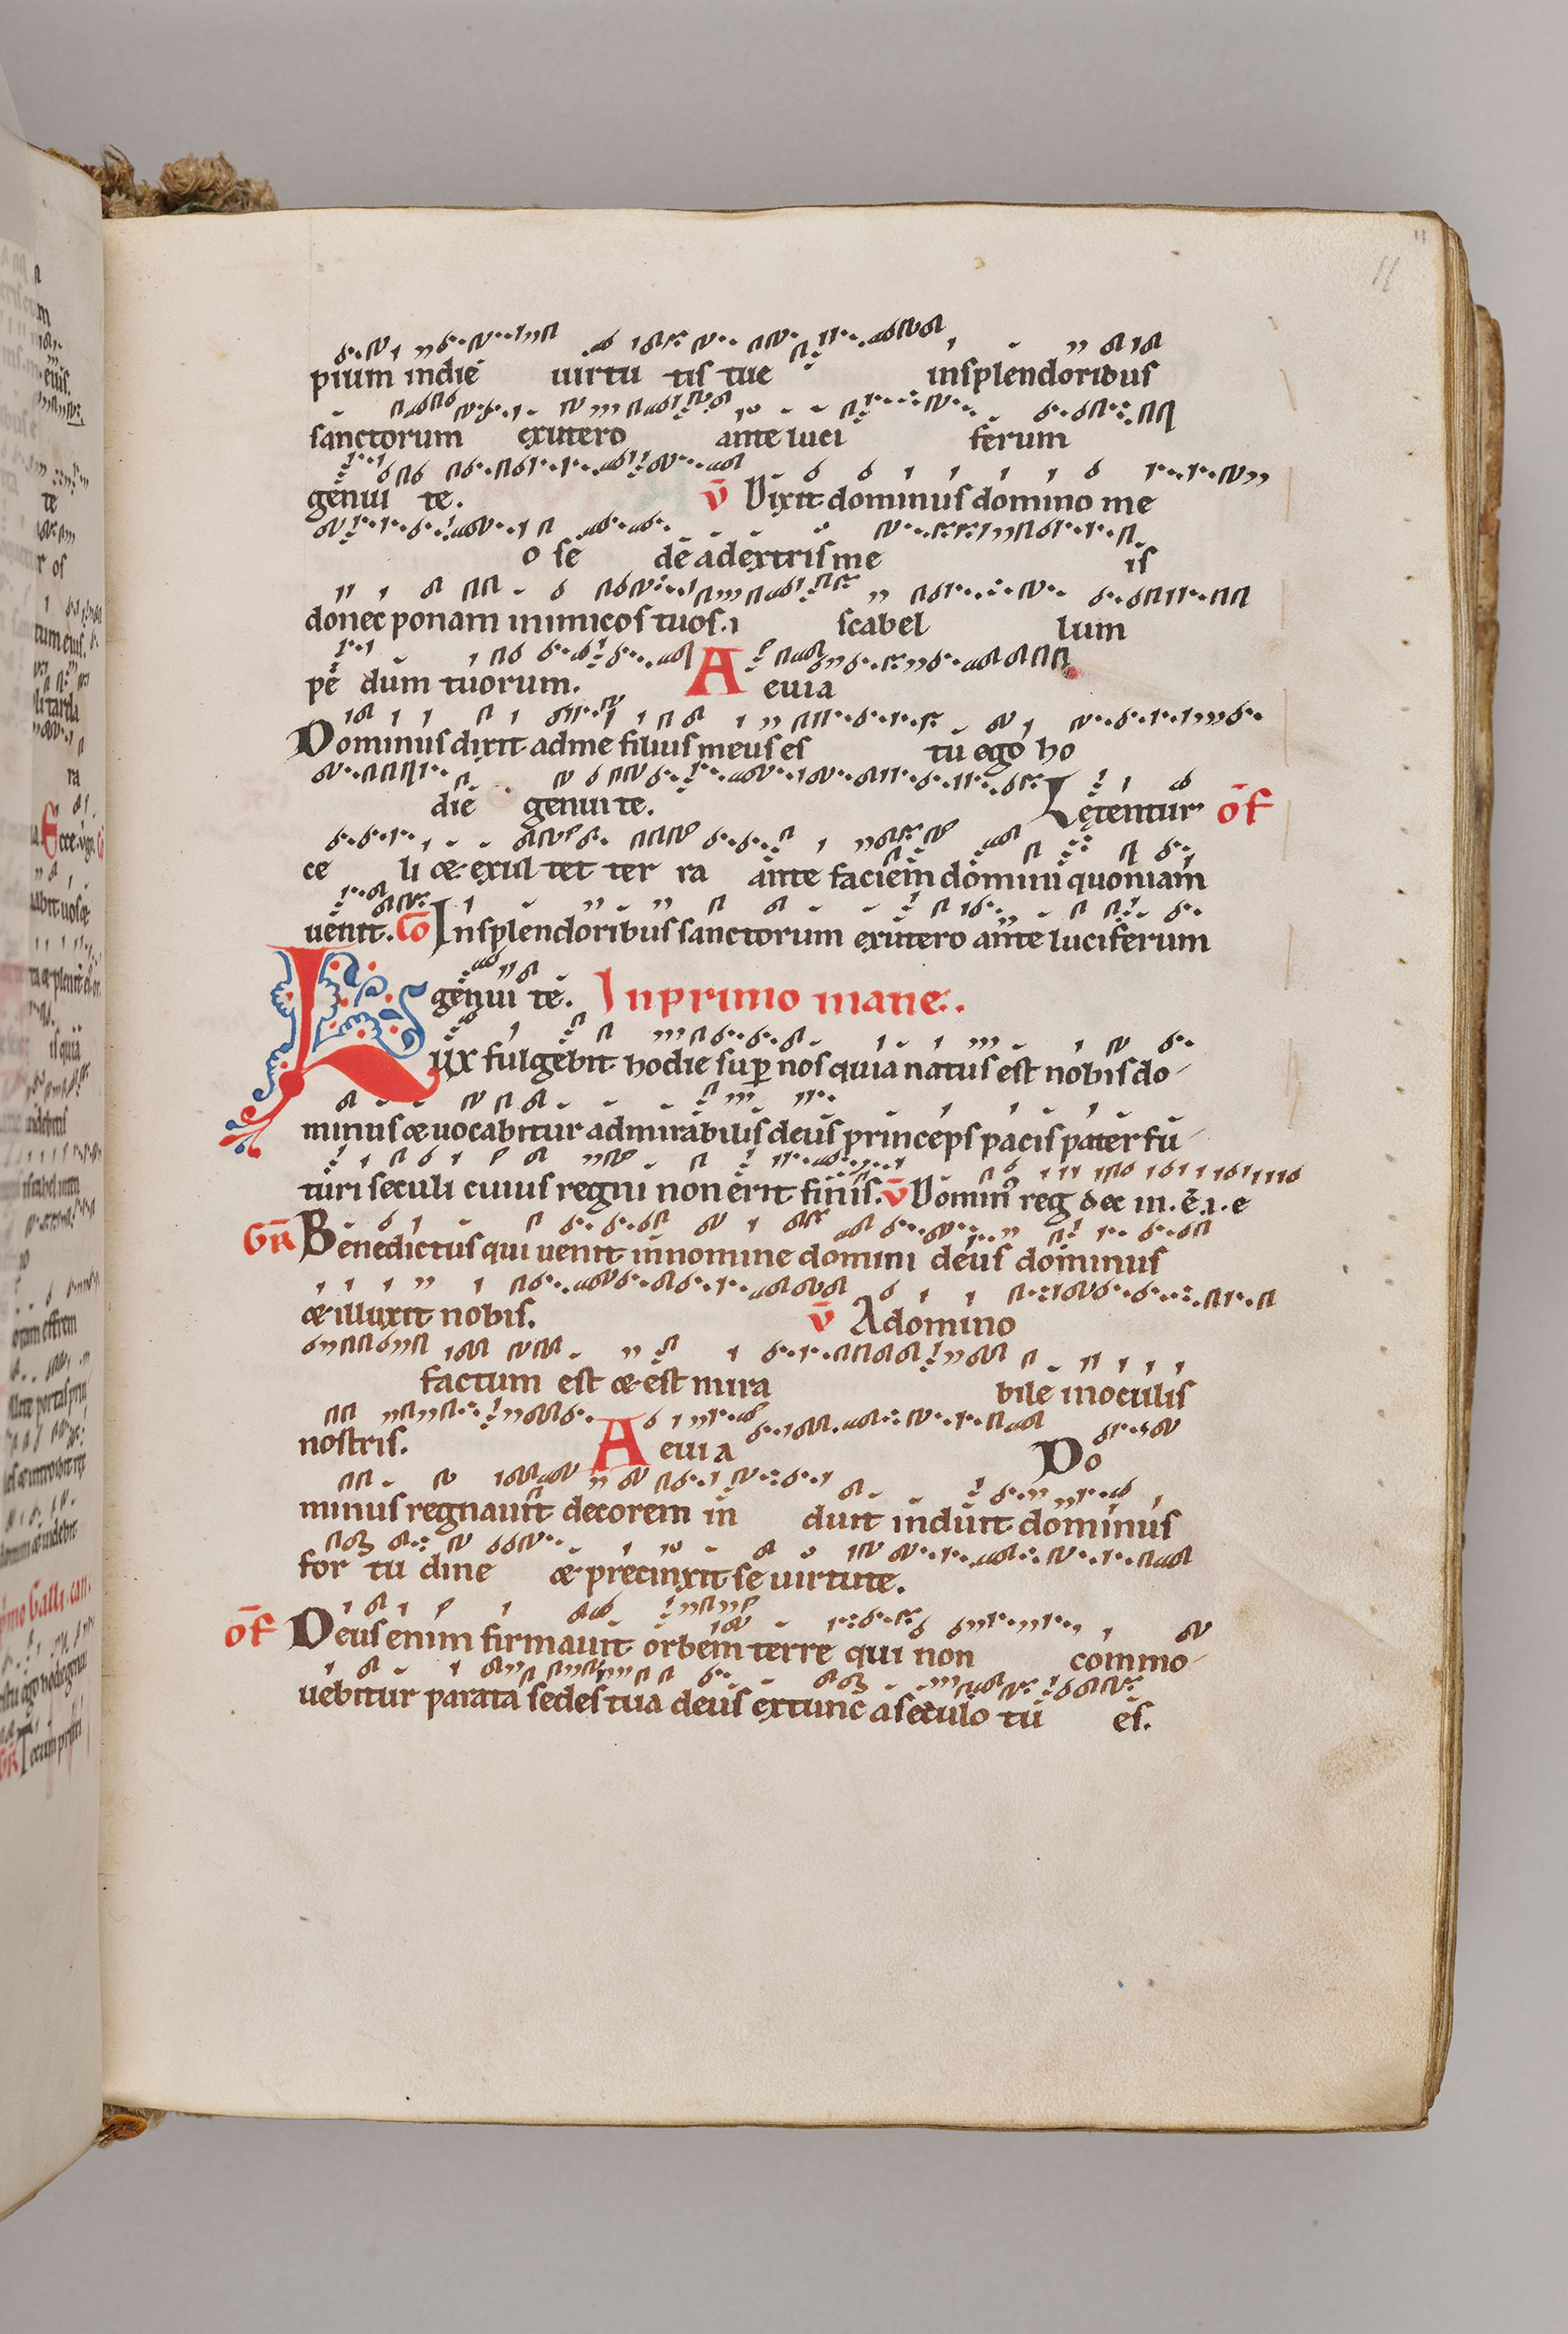 11
pium in die uirtu tis tue in splendoribus
sanctorum ex utero ante luci ferum
genui te. v̄ Dixit dominus domino me
o se de a dextris me is
donec ponam inimicos tuos. scabel lum
pe dum tuorum. A euia
Dominus dixit ad me filius meus es tu ego ho
die genui te. Letentur of̄
ce li & exul tet ter ra ante faciem domini quoniam
uenit. Cō In splendoribus sanctorum ex utero ante luciferum
genui te. In primo mane.
Lux fulgebit hodie sup nos quia natus est nobis do
minus & uocabitur admirabilis deus princeps pacis pater fu
turi seculi cuius regni non erit finis. v̄ Domin reg dec in. e. e
GR̄ Benedictus qui uenit in nomine domini deus dominus
& illuxit nobis. v̄ A domino
factum est & est mira bile in oculis
nostris. A euia Do
minus regnauit decorem in duit induit dominus
for tu dine & precinxit se uirtute.
of̄ Deus enim firmauit orbem terre qui non commo
uebitur parata sedes tua deus ex tunc a seculo tu es.